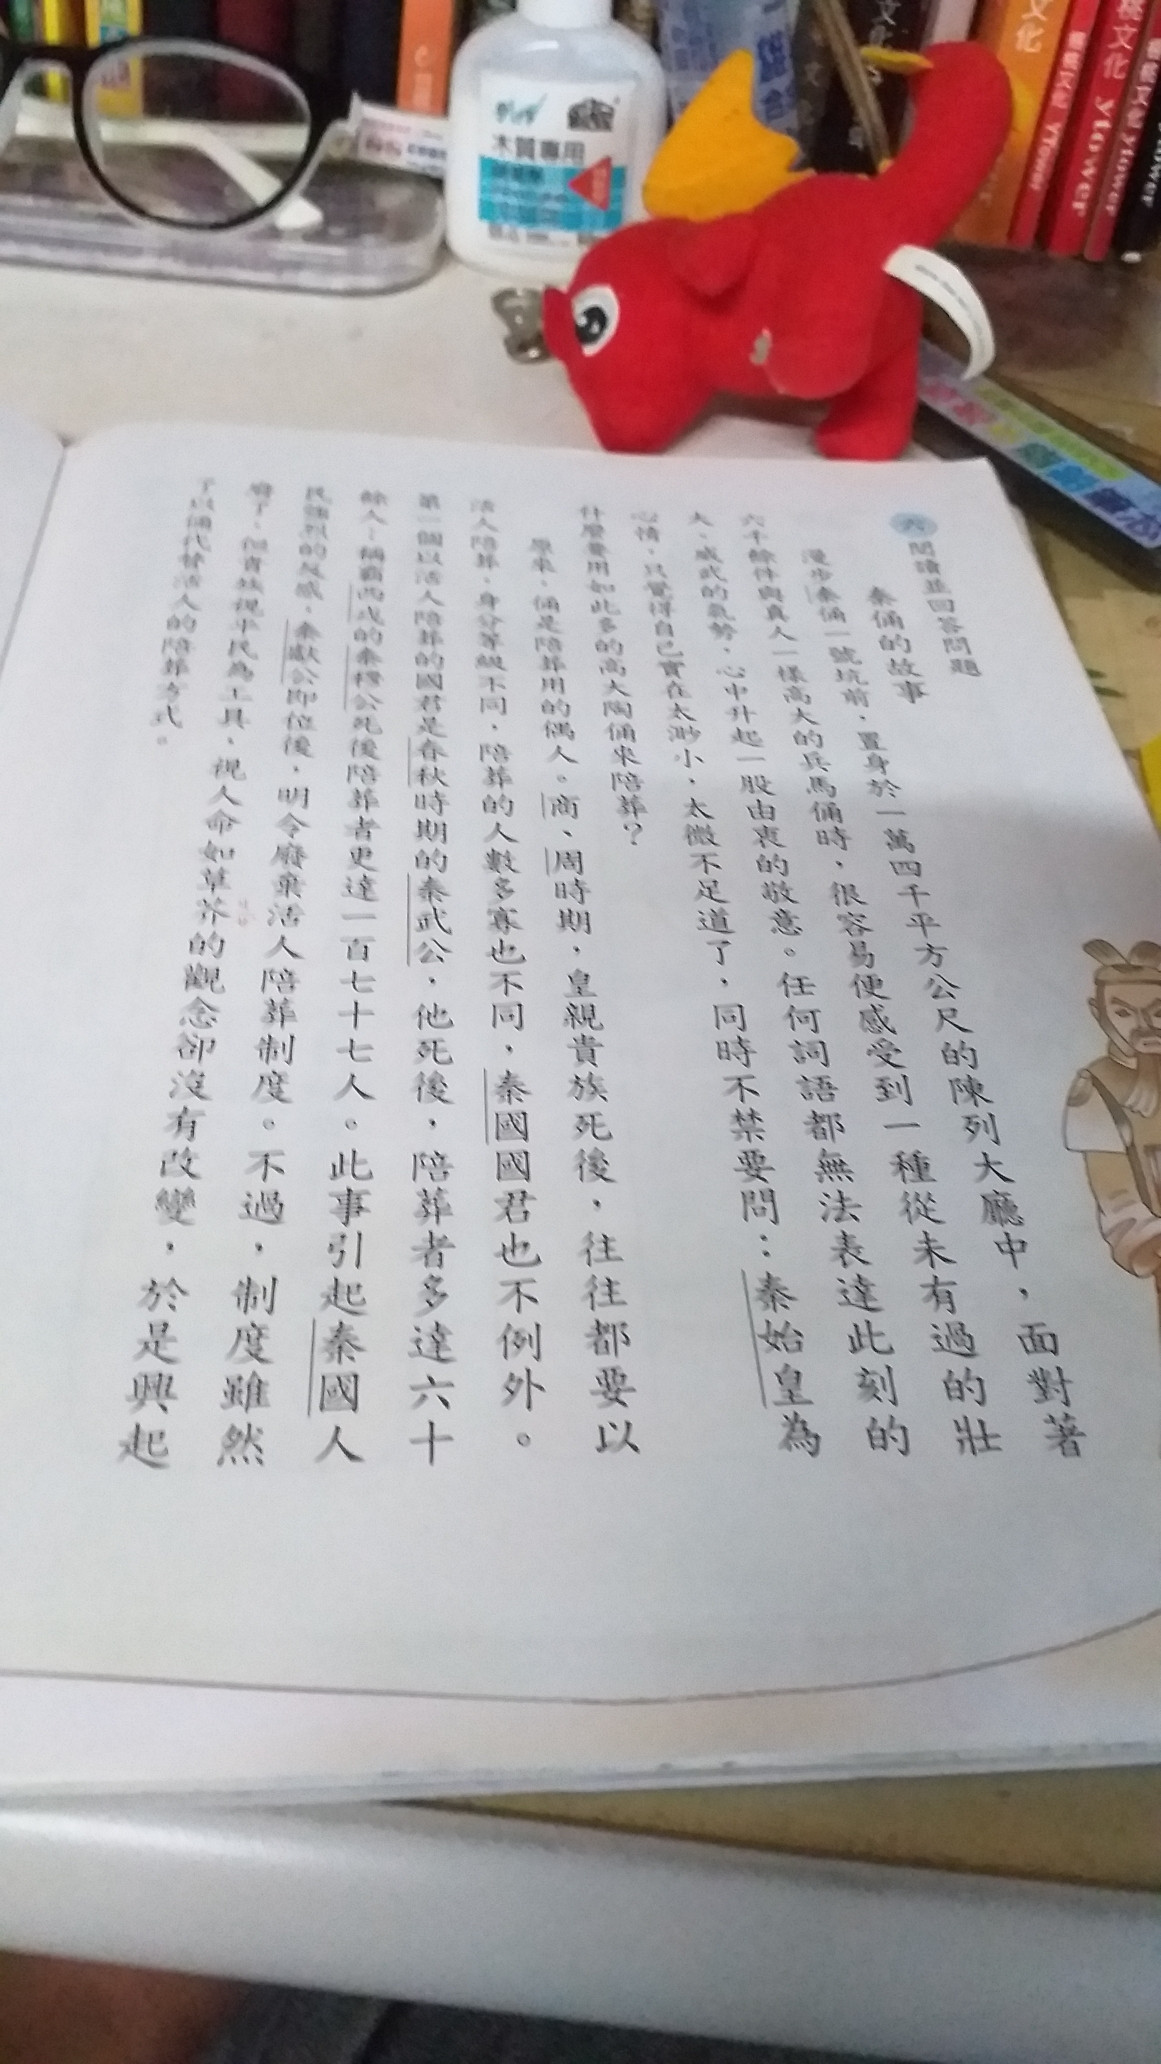 六 閱讀並回答問題
秦俑的故事
漫步秦俑一號坑前，置身於一萬四千平方公尺的陳列大廳中，面對著
六千餘件與真人一樣高大的兵馬俑時，很容易便感受到一種從未有過的壯
大、威武的氣勢，心中升起一股由衷的敬意。任何詞語都無法表達此刻的
心情，只覺得自己實在太渺小、太微不足道了，同時不禁要問：秦始皇為
什麼要用如此多的高大陶俑來陪葬？
原來，俑是陪葬用的偶人。商、周時期，皇親貴族死後，往往都要以
活人陪葬，身分等級不同，陪葬的人數多寡也不同，秦國國君也不例外。
第一個以活人陪葬的國君是春秋時期的秦武公，他死後，陪葬者多達六十
餘人；稱霸西戎的秦穆公死後陪葬者更達一百七十七人。此事引起秦國人
民強烈的反感，秦獻公即位後，明令廢棄活人陪葬制度。不過，制度雖然
廢了，但貴族視平民為工具、視人命如草芥的觀念卻沒有改變，於是興起
了以俑代替活人的陪葬方式。
木質專用
文化
ylower
ylower